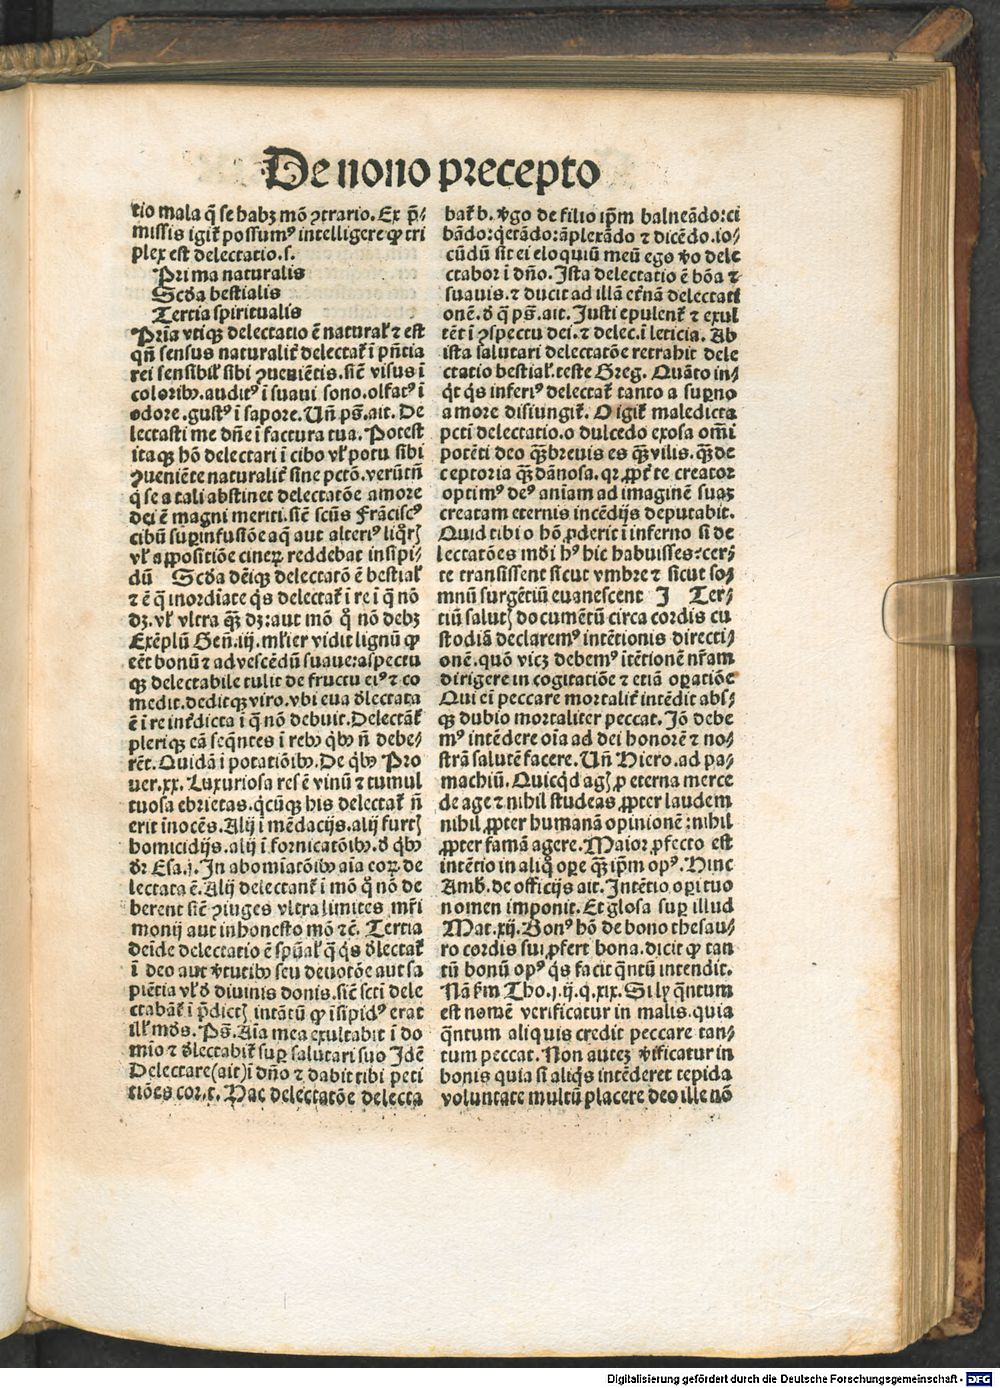 De nono precepto
tio mala q̄ se habꝫ mō ꝯtrario. Ex p̄⸗
missis igit᷑ possumꝰ intelligere ꝙ tri
plex est delectatio.s.
Prima naturalis
Scďa bestialis
Tertia spiritualis
Prīa vtiqꝫ delectatio ē natural᷑ ⁊ est
qn̄ sensus naturalit᷑ delectat᷑ ī pn̄tia
rei sensibil᷑ sibi ꝯueniētis. sic̄ visus ī
coloribꝫ. auditꝰ ī suaui sono. olfatꝰ ī
odore. gustꝰ ī sapore. Un̄ pš. ait. De
lectasti me dn̄e ī factura tua. Potest
itaqꝫ hō delectari ī cibo vl᷑ potu sibi
ꝯueniēte naturalit᷑ sine pctō. verūtn̄
q̇ se a tali abstinet delectatōe amore
dei ē magni meriti. sic̄ scūs Frāciscꝰ
cibū suꝑinfusiōe aq̄ aut alteriꝰ liq̊rꝭ
vl᷑ aꝑpositiōe cineꝝ reddebat insipi⸗
dū Scďa dēiqꝫ delectatō ē bestial᷑
⁊ ē q̄ inordīate q̇s delectat᷑ ī re ī q̄ nō
dꝫ. vl᷑ vltra q̄ꝫ dꝫ: aut mō q̊ nō debꝫ
Exēplū Geñ.iij. ml᷑ier vidit lignū ꝙ
eēt bonū ⁊ ad vescēdū suaue: aspectu
qꝫ delectabile tulit de fructu eiꝰ ⁊ co
medit. deditqꝫ viro. vbi eua ďlectata
ē ī re int᷑dicta ī q̄ nō debuit. Delectāt᷑
pleriqꝫ eā seq̄ntes ī rebꝫ q̇bꝫ n̄ debe⸗
rēt. Quidā ī potatiōibꝫ. De q̇bꝫ Pro
uer.xx. Luxuriosa res ē vinū ⁊ tumul
tuosa ebrietas. q̇cūqꝫ his delectat᷑ n̄
erit īnocēs. Alij ī mēdacijs. alij furtꝭ
homicidijs. alij ī fornicatōibꝫ. ď q̇bꝫ
ďr Esa.j. In abomīatōibꝫ aīa coꝝ de
lectata ē. Alij delectant᷑ ī mō q̊ nō de
berent sic̄ ꝯiuges vltra limites mr̄i
monij aut inhonesto mō ⁊c̄. Tertia
deīde delectatio ē sp̄ual᷑ q̄ q̇s ďlectat᷑
ī deo aut v̓tutibꝫ seu deuotōe aut sa
piētia vl᷑ ď diuinis donis. sic̄ sctī dele
ctabāt᷑ ī p̄dictꝭ intātū ꝙ īsipidꝰ erat
ill᷑ mďs. Pš. Aīa mea exultabit ī do
mīo ⁊ ďlectabit᷑ suꝑ salutari suo Idē
Delectare (ait) ī dn̄o ⁊ dabit tibi peti
tiōes cor.t. Hac delectatōe delecta
bat᷑ b. v̓go de filio ip̄m balneādo: ci
bādo: q̇etādo: āplexādo ⁊ dicēdo. io⸗
cūdū sit ei eloquiū meū ego v̓o dele
ctabor ī dn̄o. Ista delectatio ē bōa ⁊
suauis. ⁊ ducit ad illā et᷑nā delectati
onē. ď q̄ pš. ait. Justi epulent᷑ ⁊ exul
tēt ī ꝯspectu dei. ⁊ delec. ī leticia. Ab
ista salutari delectatōe retrahit dele
ctatio bestial᷑. teste Greg. Quāto in⸗
q̇t q̇s inferiꝰ delectat᷑ tanto a suꝑno
amore disiungit᷑. O igit᷑ maledicta
pctī delectatio. o dulcedo exosa om̄i
potēti deo q̄ꝫ breuis es q̄ꝫ vilis. q̄ꝫ de
ceptoria q̄ꝫ dānosa. qꝛ ꝓpt᷑ te creator
optimꝰ deꝰ aīam ad imaginē suaꝫ
creatam eternis incēdijs deputabit.
Quid tibi o hō ꝓderit ī inferno si de
lectatōes mďi hꝰ hic habuisses: cer⸗
te transissent sicut vmbre ⁊ sicut so⸗
mnū surgētiū euanescent I Ter⸗
tiū salutꝭ documētū circa cordis cu
stodiā declaremꝰ intētionis directi⸗
onē. quō vicꝫ debemꝰ ītētionē nr̄am
dirigere in cogitatiōe ⁊ etiā oꝑatiōe
Qui eī peccare mortalit᷑ intēdit abs⸗
qꝫ dubio mortaliter peccat. Jō debe
mꝰ intēdere oīa ad dei honorē ⁊ no⸗
strā salutē facere. Un̄ Hiero. ad pa⸗
machiū. Quicq̇d agꝭ ꝓ eterna merce
de age ⁊ nihil studeas ꝓpter laudem
nihil ꝓpter humanā opinionē: nihil
ꝓpter famā agere. Maior ꝓfecto est
intētio in aliq̊ oꝑe q̄ꝫ ip̄m opꝰ. Hinc
Amb. de officijs ait. Intētio oꝑi tuo
nomen imponit. Et glosa suꝑ illud
Mat.xij. Bonꝰ hō de bono thesau⸗
ro cordis sui ꝓfert bona. dicit ꝙ tan
tū bonū opꝰ q̇s facit q̄ntū intendit.
Nā ẜm Tho.j.ij.q.xix. Si ly q̄ntum
est nomē verificatur in malis. quia
q̄ntum aliquis credit peccare tan⸗
tum peccat. Non auteꝫ v̓ificatur in
bonis quia si aliq̇s intēderet tepida
voluntate multū placere deo ille nō
Digitalisierung gefördert durch die Deutsche Forschungsgemeinschaft - DFG